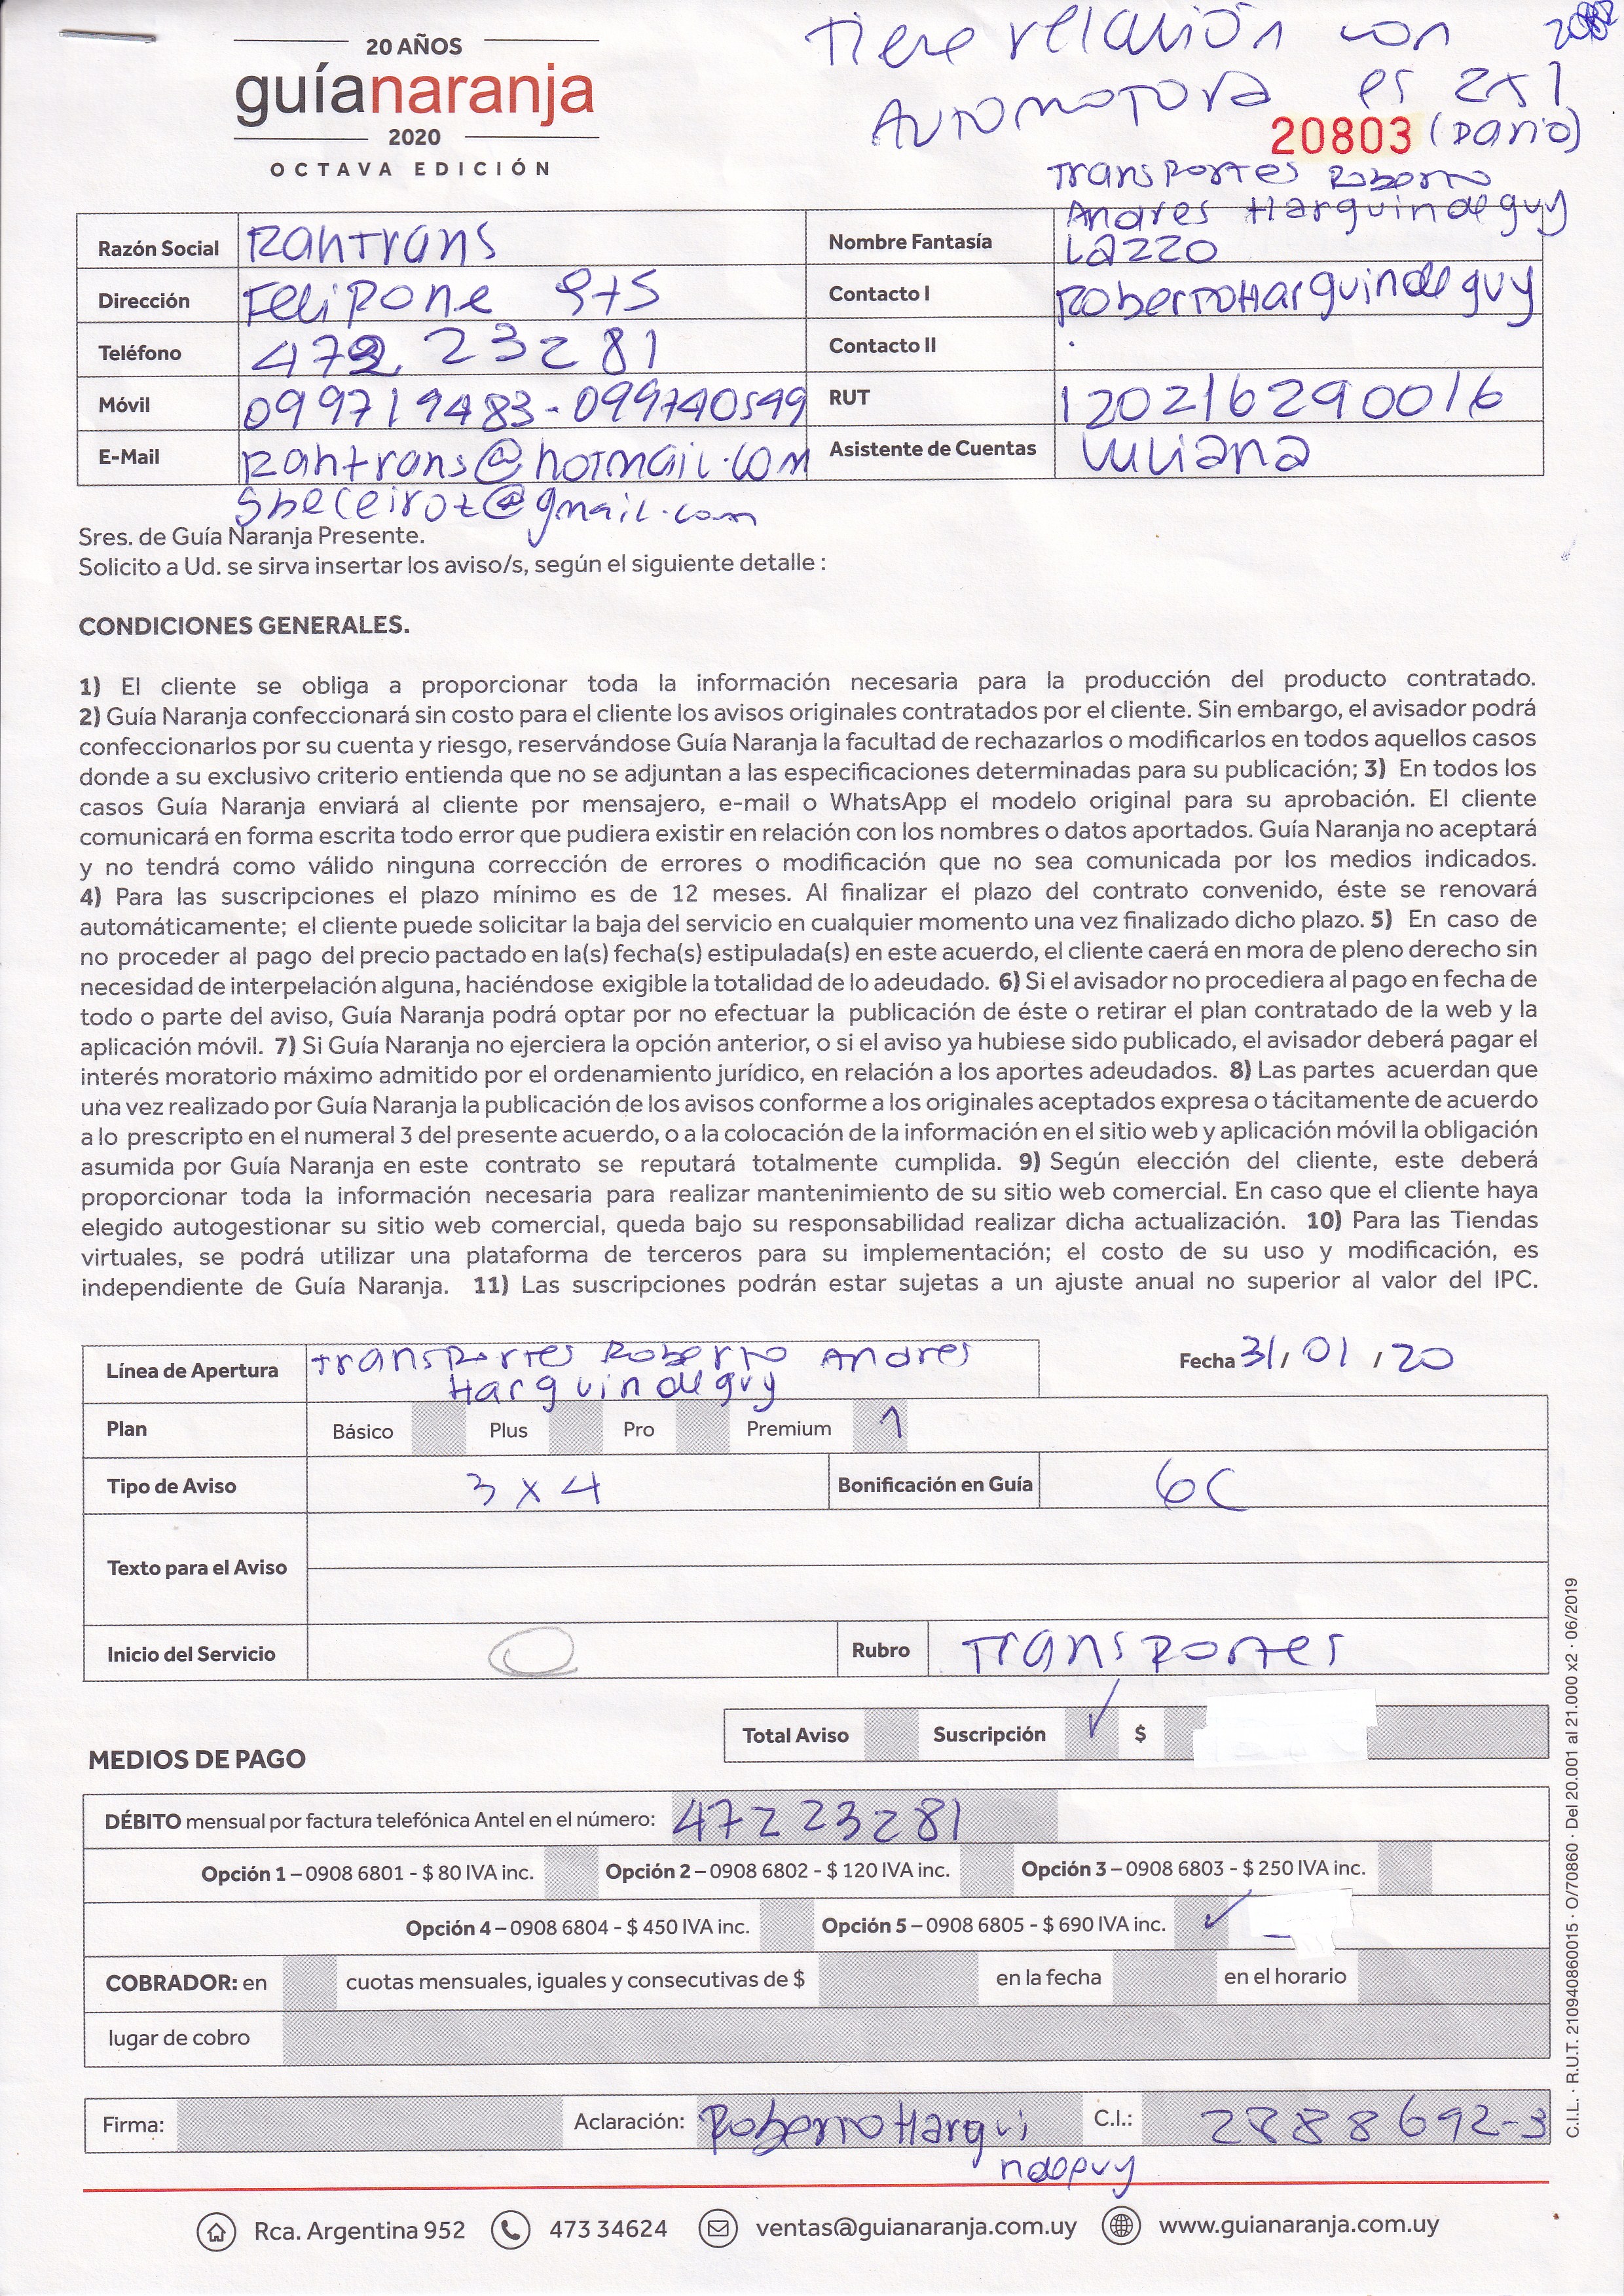 20 AÑOS
guíanaranja
2020
OCTAVA EDICIÓN
Tiene relación con
Automotora es 2x1
20803 (Dario)
Transportes Roberto
Andres Harguindeguy
Lazzo
Razón Social Rahtrans Nombre Fantasía
Dirección Felipone 975 Contacto I Roberto Harguindeguy
Teléfono 472 23281 Contacto II
Móvil 099719483 - 099740549 RUT 120216290016
E-Mail rahtrans@hotmail.com Asistente de Cuentas Luliana
sbeceiroz@gmail.com
Sres. de Guía Naranja Presente.
Solicito a Ud. se sirva insertar los aviso/s, según el siguiente detalle :
CONDICIONES GENERALES.
1) El cliente se obliga a proporcionar toda la información necesaria para la producción del producto contratado.
2) Guía Naranja confeccionará sin costo para el cliente los avisos originales contratados por el cliente. Sin embargo, el avisador podrá
confeccionarlos por su cuenta y riesgo, reservándose Guía Naranja la facultad de rechazarlos o modificarlos en todos aquellos casos
donde a su exclusivo criterio entienda que no se adjuntan a las especificaciones determinadas para su publicación; 3) En todos los
casos Guía Naranja enviará al cliente por mensajero, e-mail o WhatsApp el modelo original para su aprobación. El cliente
comunicará en forma escrita todo error que pudiera existir en relación con los nombres o datos aportados. Guía Naranja no aceptará
y no tendrá como válido ninguna corrección de errores o modificación que no sea comunicada por los medios indicados.
4) Para las suscripciones el plazo mínimo es de 12 meses. Al finalizar el plazo del contrato convenido, éste se renovará
automáticamente; el cliente puede solicitar la baja del servicio en cualquier momento una vez finalizado dicho plazo. 5) En caso de
no proceder al pago del precio pactado en la(s) fecha(s) estipulada(s) en este acuerdo, el cliente caerá en mora de pleno derecho sin
necesidad de interpelación alguna, haciéndose exigible la totalidad de lo adeudado. 6) Si el avisador no procediera al pago en fecha de
todo o parte del aviso, Guía Naranja podrá optar por no efectuar la publicación de éste o retirar el plan contratado de la web y la
aplicación móvil. 7) Si Guía Naranja no ejerciera la opción anterior, o si el aviso ya hubiese sido publicado, el avisador deberá pagar el
interés moratorio máximo admitido por el ordenamiento jurídico, en relación a los aportes adeudados. 8) Las partes acuerdan que
una vez realizado por Guía Naranja la publicación de los avisos conforme a los originales aceptados expresa o tácitamente de acuerdo
a lo prescripto en el numeral 3 del presente acuerdo, o a la colocación de la información en el sitio web y aplicación móvil la obligación
asumida por Guía Naranja en este contrato se reputará totalmente cumplida. 9) Según elección del cliente, este deberá
proporcionar toda la información necesaria para realizar mantenimiento de su sitio web comercial. En caso que el cliente haya
elegido autogestionar su sitio web comercial, queda bajo su responsabilidad realizar dicha actualización. 10) Para las Tiendas
virtuales, se podrá utilizar una plataforma de terceros para su implementación; el costo de su uso y modificación, es
independiente de Guía Naranja. 11) Las suscripciones podrán estar sujetas a un ajuste anual no superior al valor del IPC.
Línea de Apertura Transportes Roberto Andres
Harguindeguy
Fecha 31/01/20
Plan Básico Plus Pro Premium 1
Tipo de Aviso 3 x 4 Bonificación en Guía 6C
Texto para el Aviso
Inicio del Servicio Rubro Transportes
Total Aviso Suscripción ✓ $
MEDIOS DE PAGO
DÉBITO mensual por factura telefónica Antel en el número: 47223281
Opción 1 – 0908 6801 - $ 80 IVA inc. Opción 2 – 0908 6802 - $ 120 IVA inc. Opción 3 – 0908 6803 - $ 250 IVA inc.
Opción 4 – 0908 6804 - $ 450 IVA inc. Opción 5 – 0908 6805 - $ 690 IVA inc. ✓
COBRADOR: en cuotas mensuales, iguales y consecutivas de $ en la fecha en el horario
lugar de cobro
Firma: Aclaración: Roberto Hargui C.I.: 2888692-3
ndeguy
Rca. Argentina 952 473 34624 ventas@guianaranja.com.uy www.guianaranja.com.uy
C.I.L. · R.U.T. 210940860015 · O/70860 · Del 20.001 al 21.000 x2 · 06/2019